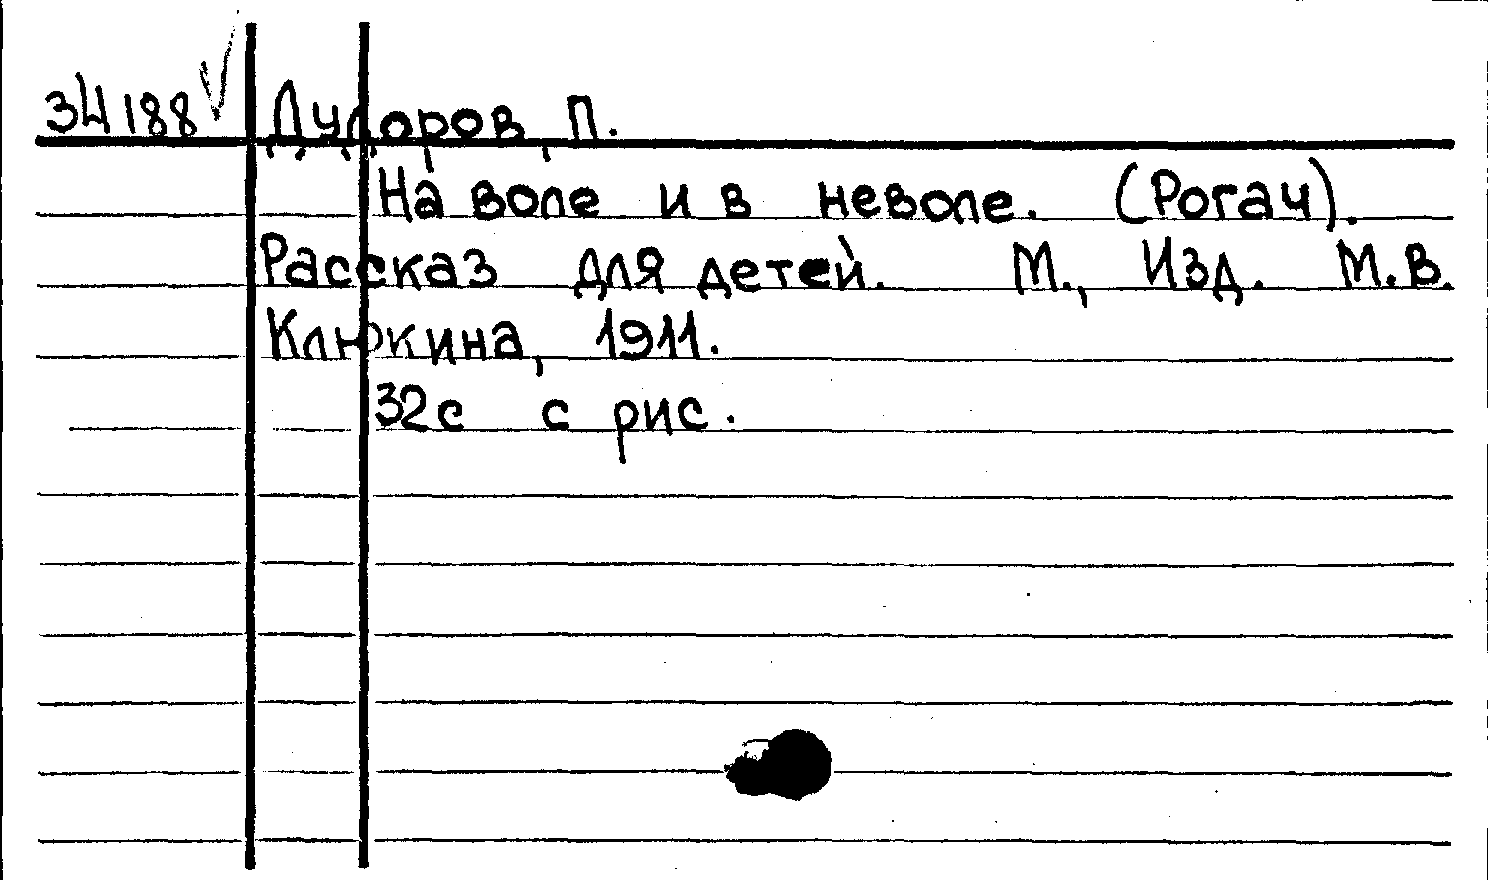 34188 Дудоров, П.
На воле и в неволе. (Рогач).
Рассказ для детей. М., Изд. М.В.
Клюкина, 1911.
32с с рис.